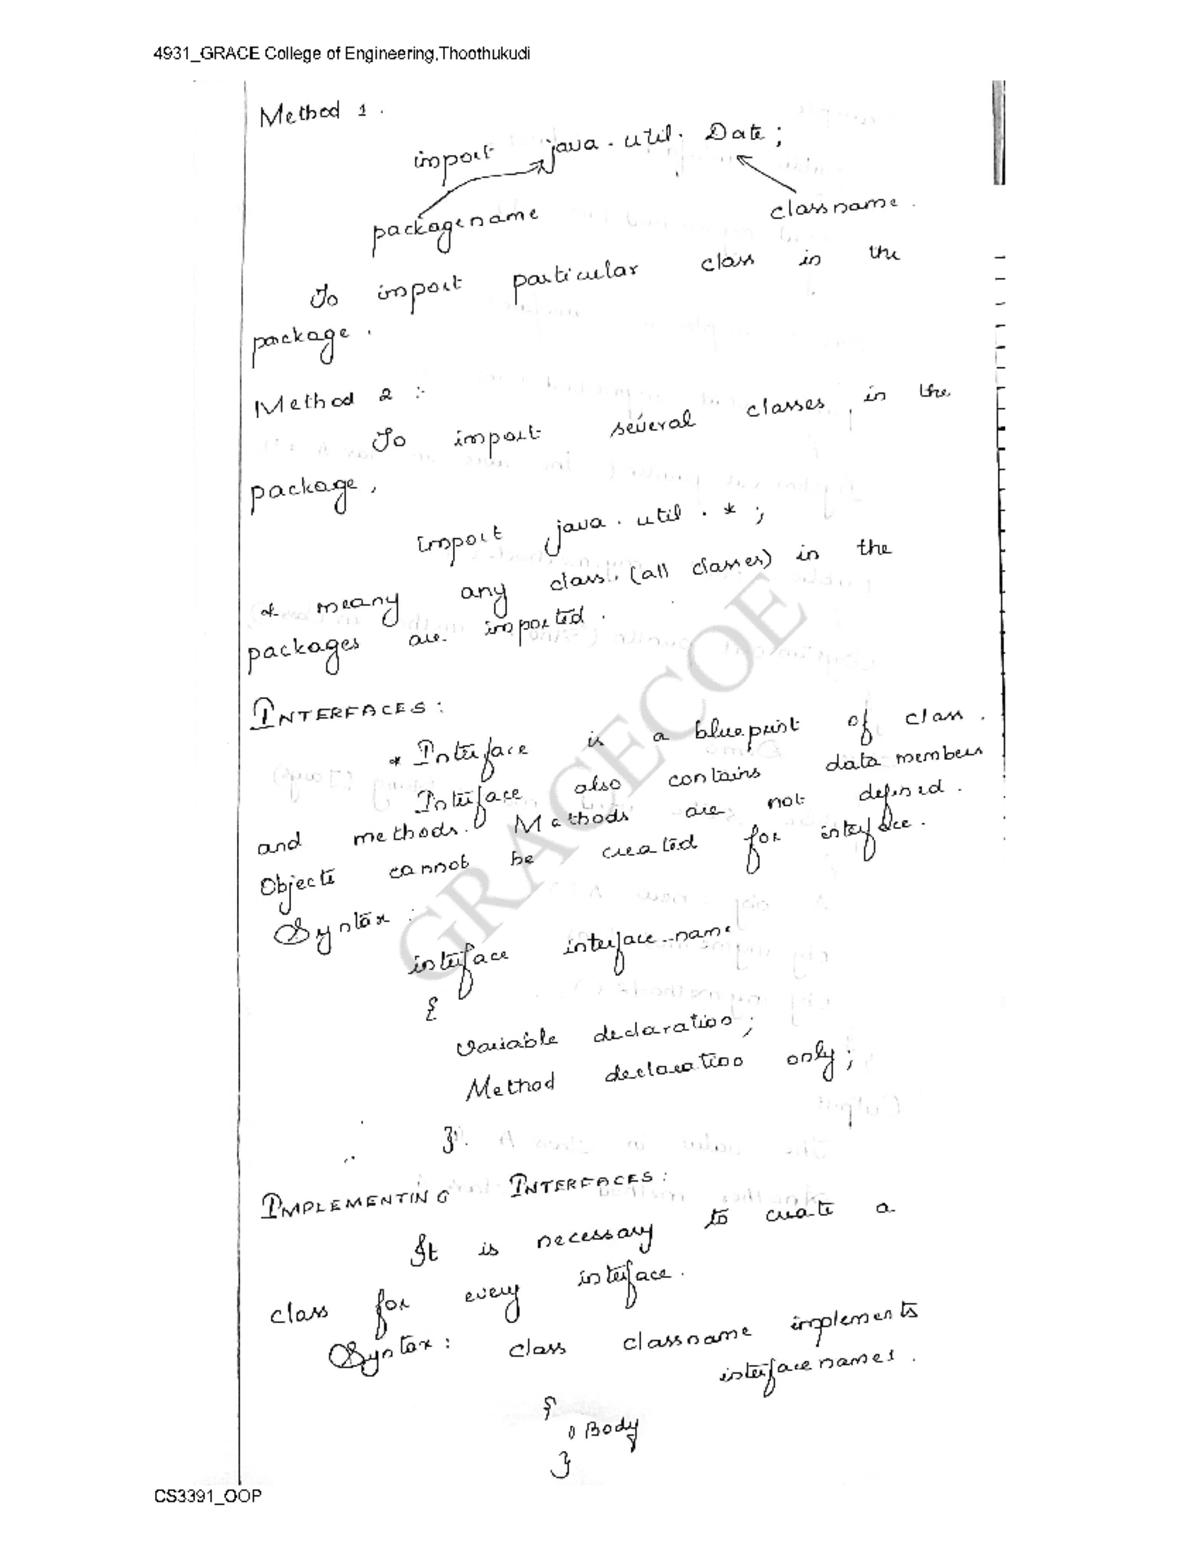 4931_GRACE College of Engineering,Thoothukudi
Method 1.
import java.util.Date;
packagename classname.
To import particular class in the
package.
Method 2 :-
To import several classes in the
package,
import java.util.*;
* meany any class. (all classes) in the
packages are imported.
INTERFACES:
* Interface is a blueprint of class.
Interface also contains data members
and methods. Methods are not defined.
Objects cannot be created for interface.
Syntax:
interface interface-name
{
Variable declaration;
Method declaration only;
}
IMPLEMENTING INTERFACES:
It is necessary to create a
class for every interface.
Syntax: class classname implements
interfacename1.
{
Body
}
GRACECOE
CS3391_OOP